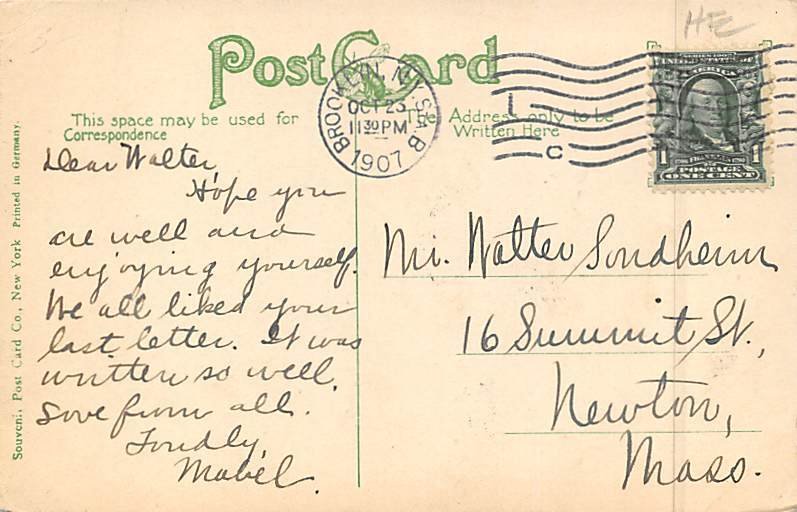 HE
Post Card
This space may be used for
Correspondence
The Address only to be
Written Here
BROOKLYN, N.Y. STA. B
OCT 23
11 30 PM
1907
C
SERIES 1902
UNITED STATES OF
AMERICA
FRANKLIN
1 1
POSTAGE
ONE CENT
Dear Walter,
Hope you
are well and
enjoying yourself.
We all liked your
last letter. It was
written so well.
Love from all.
Fondly,
Mabel.
Mr. Walter Sondheim
16 Summit St.,
Newton,
Mass.
Souvenir Post Card Co., New York Printed in Germany.